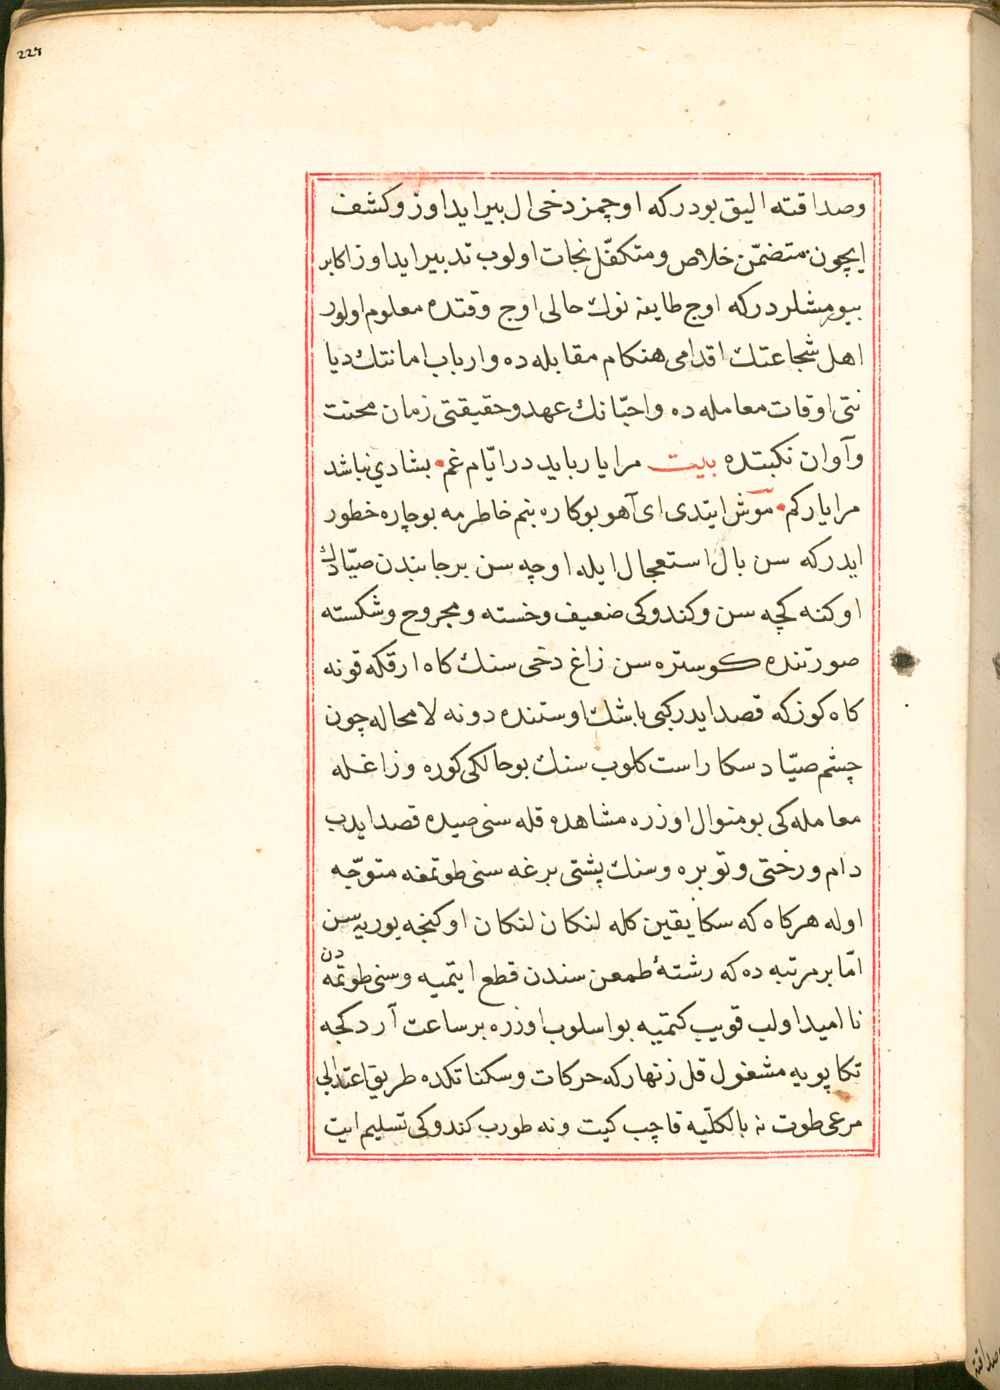 227
وصداقته اليق بودركه اوچمز دخى ال بير ايداوز وكشف
ايچون متضمّن خلاص ومتكفّل نجات اولوب تدبير ايداوز اكابر
بيورمشلر دركه اوج طايفه نوك حالى اوج وقتده معلوم اولور
اهل شجاعتك اقدامى هنكام مقابله ده وارباب امانتك ديا
نتى اوقات معامله ده واحبّانك عهد وحقيقتى زمان محنت
وآوان نكبتده بيت مرا يار بايد در ايّام غم • بشادي نباشد
مرا يار كم • موش ايتدى اى آهو بو كاره بنم خاطرمه بو چاره خطور
ايدركه سن بال استعجال ايله اوچه سن بر جانبدن صيّادك
اوكنه كچه سن وكندوكى ضعيف وخسته ومجروح وشكسته
صورتنده كوستره سن زاغ دخى سنك كاه ارقكه قونه
كاه كوزكه قصد ايدر كبى باشك اوستنده دونه لا محاله چون
چشم صيّاد سكا راست كلوب سنك بو حالكى كوره وزاغله
معامله كى بو منوال اوزره مشاهده قله سنى صيده قصد ايدب
دام ورختى وتوبره وسنك پشتى برغه سنى طوتمغه متوجّه
اوله هركاه كه سكا يقين كله لنكان لنكان اوكنجه يوريه سن
امّا بر مرتبه ده كه رشتهٔ طمعن سندن قطع ايتميه وسنى طوتمه دن
نااميد اولب قويب كتميه بو اسلوب اوزره بر ساعت آردكجه
تكاپويه مشغول قل زنهاركه حركات وسكناتكده طريق اعتدالى
مرعى طوت نه بالكلّيه قاچب كيت ونه طورب كندوكى تسليم ايت
وصداقته